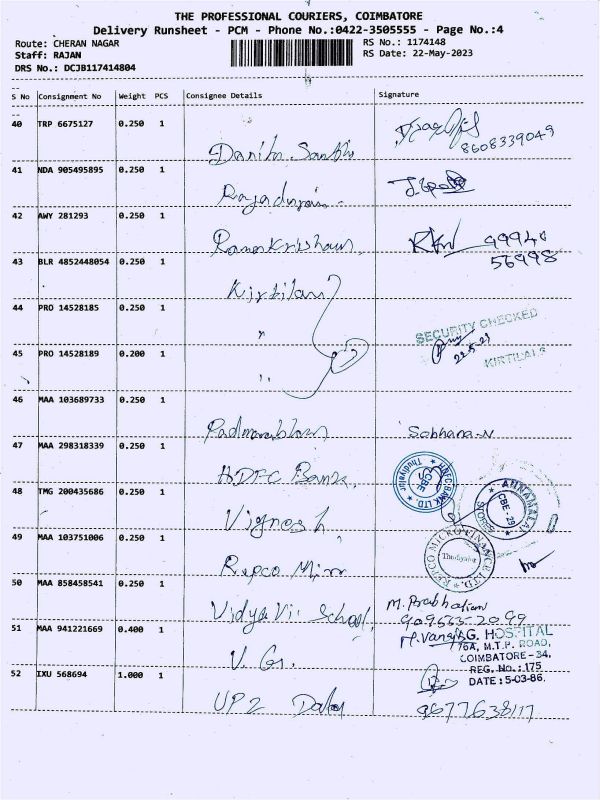 THE PROFESSIONAL COURIERS, COIMBATORE
Delivery Runsheet - PCM - Phone No.:0422-3505555 - Page No.:4
Route: CHERAN NAGAR
RS No.: 1174148
Staff: RAJAN
RS Date: 22-May-2023
DRS No.: DCJB117414804
S No Consignment No Weight PCS Consignee Details Signature
40 TRP 6675127 0.250 1
8608339049
41 NDA 905495895 0.250 1
42 AWY 281293 0.250 1
Ramakrishnan
99940
56998
43 BLR 4852448054 0.250 1
Kirtilal
44 PRO 14528185 0.250 1
"
SECURITY CHECKED
22.5.23
KIRTILALS
45 PRO 14528189 0.200 1
"
46 MAA 103689733 0.250 1
Padmanabhan
Sobhana-N
47 MAA 298318339 0.250 1
HDFC Bank.
HDFC BANK LTD. Thudiyalur CBE
48 TMG 200435686 0.250 1
Vignesh
ANNAMALAI STORES CBE-29
49 MAA 103751006 0.250 1
Repco Micro
REPCO MICRO FINANCE LTD. Thudiyalur
50 MAA 858458541 0.250 1
Vidya Vi School
M. Prabhakaran
51 MAA 941221669 0.400 1
V. G.
V.G. HOSPITAL
76A, M.T.P. ROAD,
COIMBATORE-34.
REG. No.: 175
DATE: 5-03-86.
52 IXU 568694 1.000 1
UPZ
9677638117